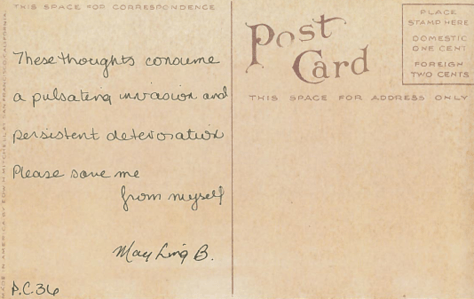 THIS SPACE FOR CORRESPONDENCE
These thoughts consume
a pulsating invasion and
persistent deterioration
Please save me
from myself
May Ling B.
P.C.36
Post
Card
PLACE
STAMP HERE
DOMESTIC
ONE CENT
FOREIGN
TWO CENTS
THIS SPACE FOR ADDRESS ONLY